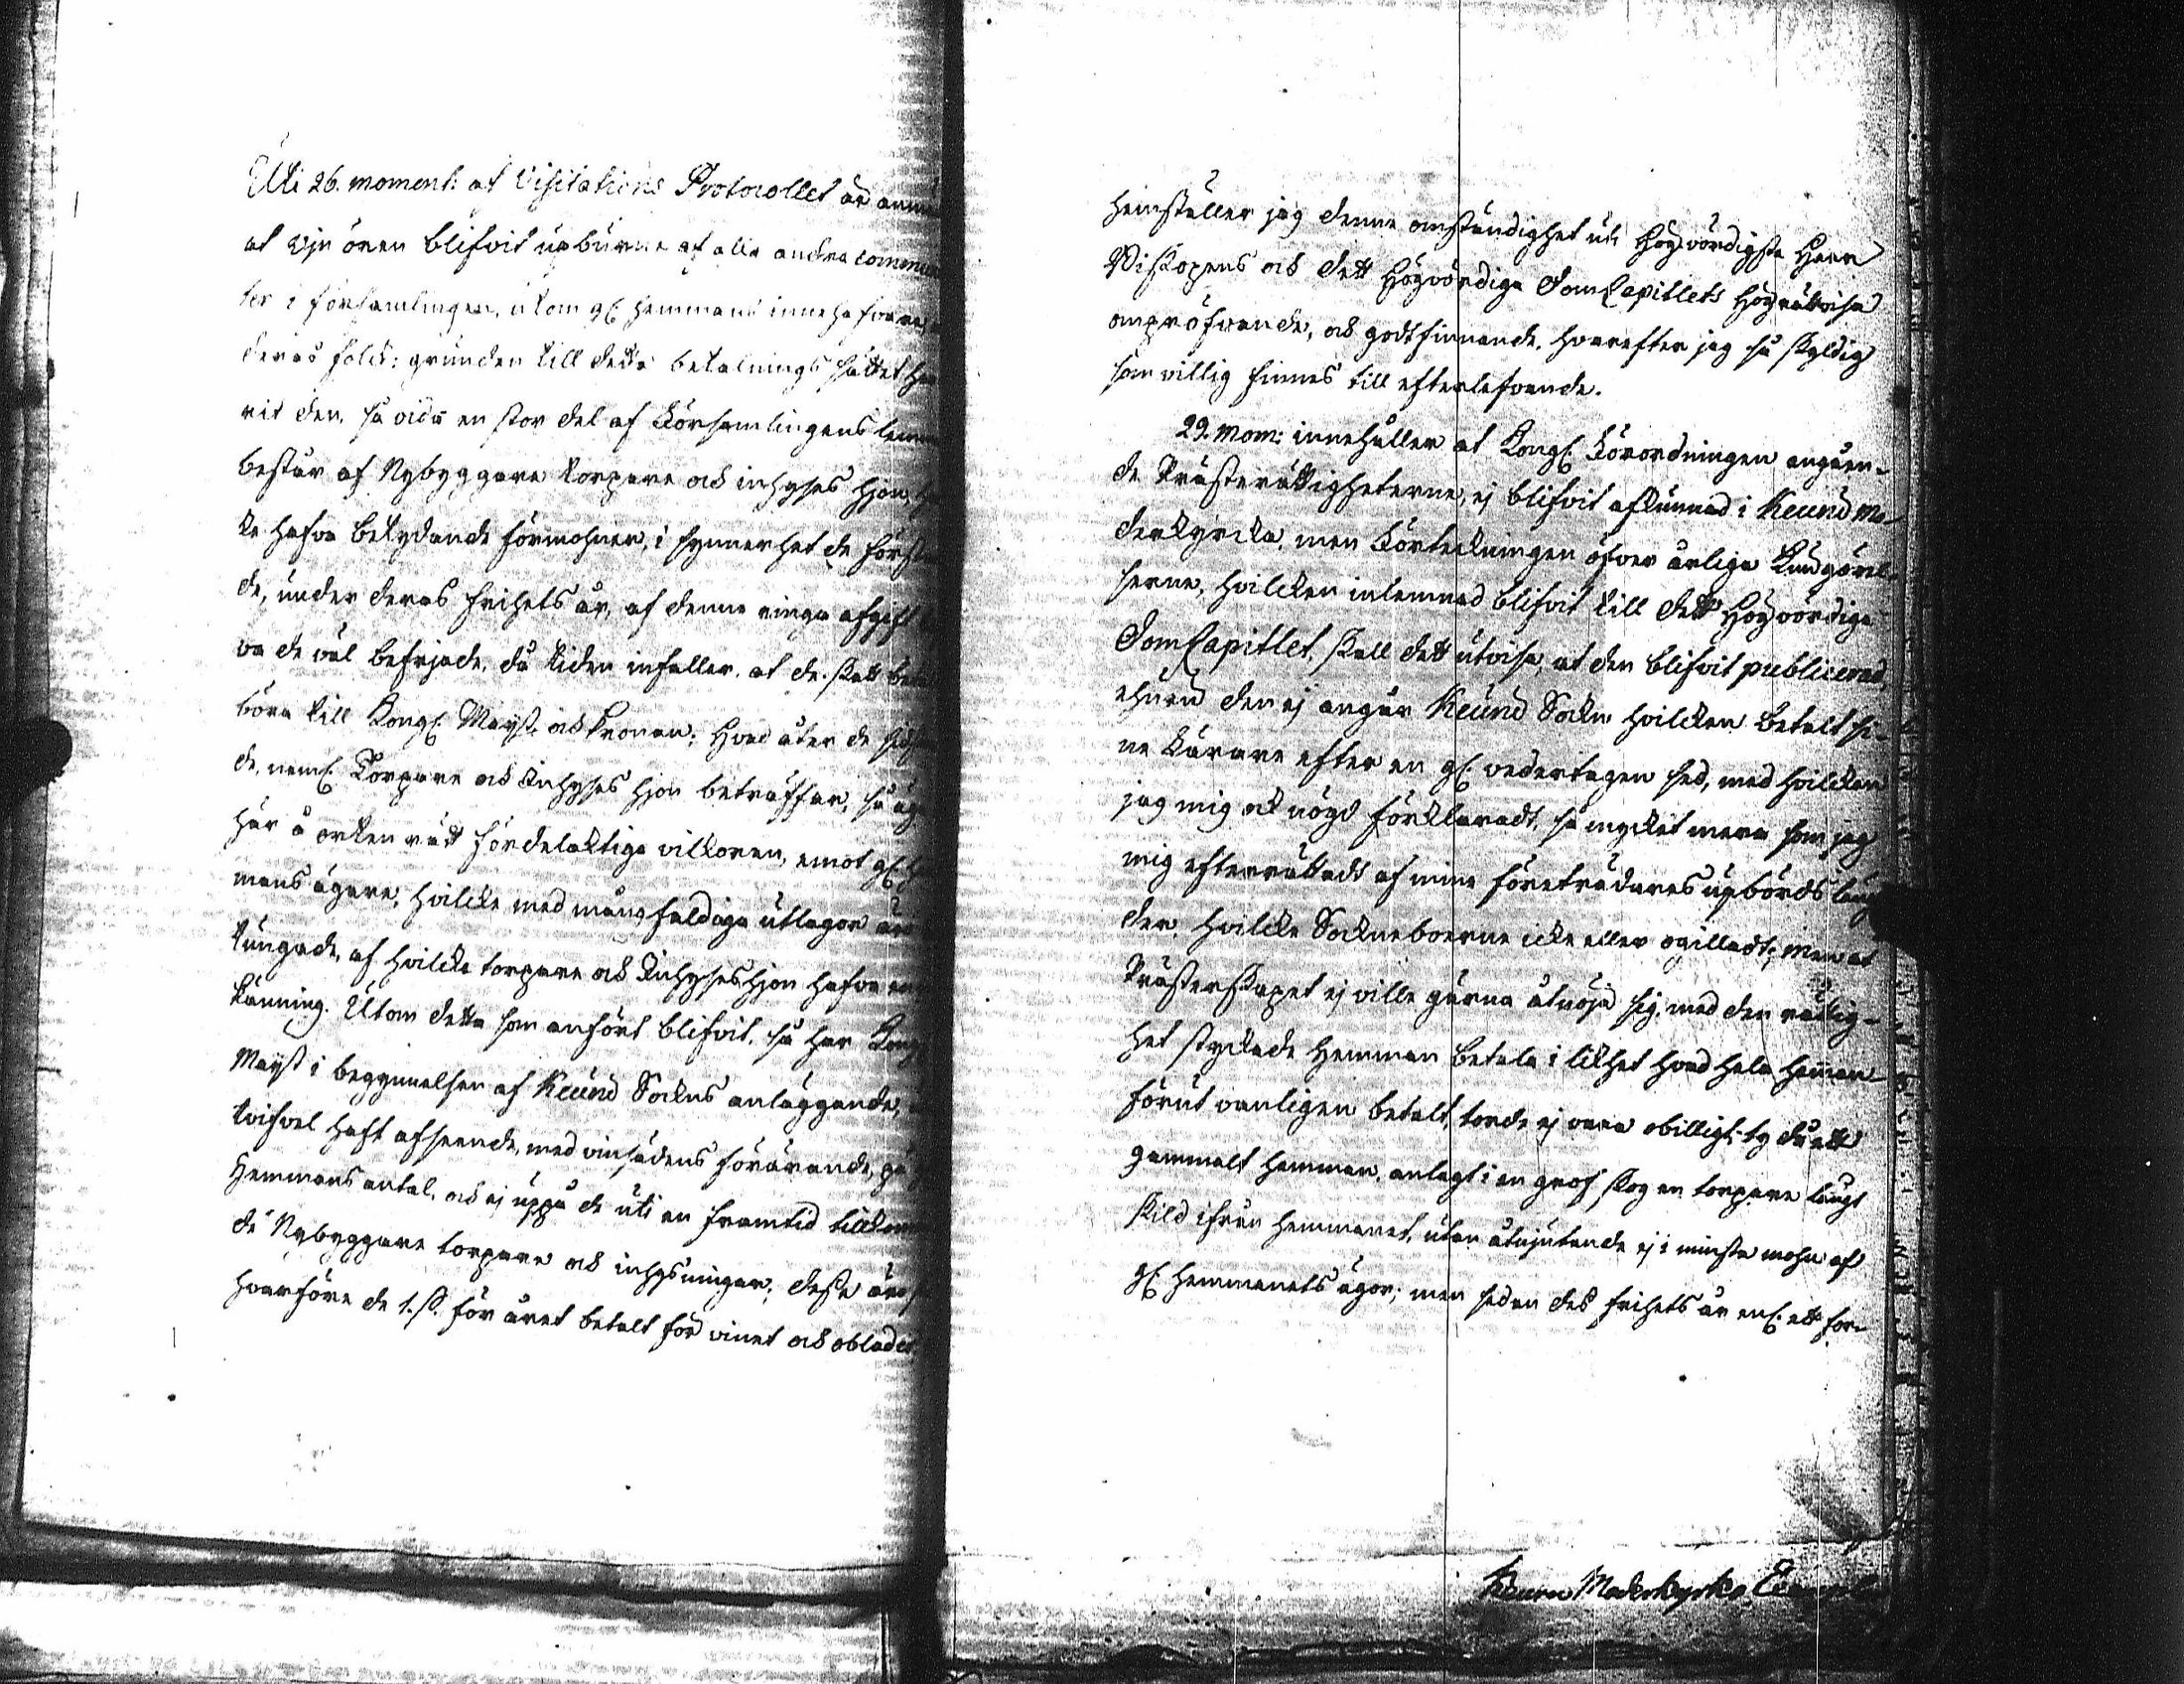 Uti 26. moment: af Visitations Protocollet är
at vjn ören blifvit upburne af alla andra
ter i församlingen, utom gl. hemmans innehafvare,
deras folck: grunden till detta betalnings sättet
rit den, så vida en stor del af Församlingens
består af Nybyggare torpare och inhyses hjon,
ke hafva betydande förmohner, i synnerhet de
de, under deras frihets år, af denne ringa afgift
va de väl befrjade, då tiden infaller, at de skatt
böra till Kongl. Mayst. och kronan; Hvad åter de
de, neml. Torpare och Inhyses hjon beträffar, så
här å orten rätt fördelaktiga vilkoren, emot gl.
mans ägare, hvilcke med mångfaldiga utlagor
tungade, af hvilcka torpare och Inhyseshjon hafva
känning. Utom detta som anfört blifvit, så har
Mayst i begynnelsen af Keurù Sockns anläggande,
tvifvel haft afseende, med vinsädens förärande,
Hemmans antal, och ej uppå de uti en framtid
de Nybyggare torpare och inhysningar; desse
hvarföre de 1. ß. för året betalt för vinet och oblader.
hemställer jag denne omständighet uti Högvördigste Herr
Biskopens och dett Högvördiga DomCapitlets Högrättvisa
ompröfvande, och godtfinnande, hvarefter jag så skyldig
som villig finnes till efterlefvande.
29. Mom: innehåller at Kongl. Förordningen angåen-
de Prästerättigheterne, ej blifvit afkunnad i Keurù mo-
derkyrcka, men Förteckningen öfver årliga Kundgörel-
serne, hvilcken inlemnad blifvit till dett Högvördiga
DomCapitlet, skall dett utvisa, at den blifvit publicerad,
ehuru den ej angår Keurù Sockn hvilcken betalt si-
ne Lärare efter en gl. vedertagen sed, med hvilcken
jag mig ock nögd förklarat, så mycket mera som jag
mig efterrättadt af mine företrädares upbörds läng
der, hvilcke Sockneboerne icke eller ogilladt; men at
Prästerskapet ej ville gärna åtnöja sig, med den rättig-
het styckade Hemman betala i likhet hvad hela Hemman-
förut vanligen betalt, torde ej vara obilligt; ty då ett
gammalt Hemman, anlagt i en grof skog en torpare långt
skild ifrån hemmanet, utan åtnjutande ej i minsta mohn af
gl. Hemmanets ägor; men sedan des frihets år enl. ett for-
Keuru Moderkyrka